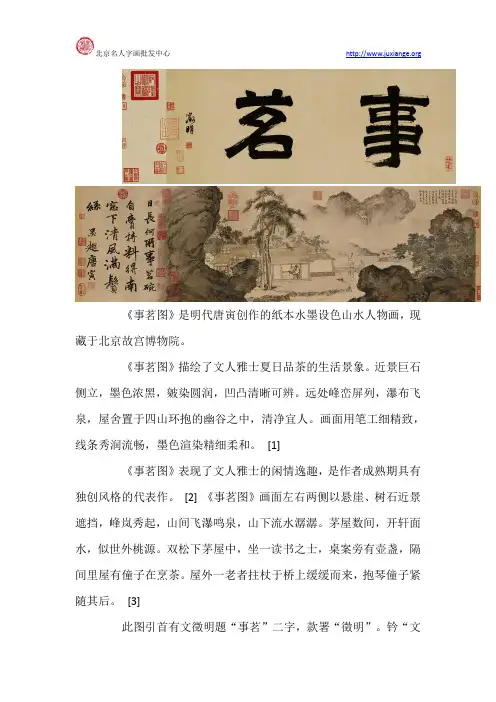 北京名人字画批发中心 http://www.juxiange.org
事茗
徵明
日長何所事茗碗
自賫持料得南
窗下清風滿鬢
絲 吳趨唐寅
《事茗图》是明代唐寅创作的纸本水墨设色山水人物画，现
藏于北京故宫博物院。
《事茗图》描绘了文人雅士夏日品茶的生活景象。近景巨石
侧立，墨色浓黑，皴染圆润，凹凸清晰可辨。远处峰峦屏列，瀑布飞
泉，屋舍置于四山环抱的幽谷之中，清净宜人。画面用笔工细精致，
线条秀润流畅，墨色渲染精细柔和。 [1]
《事茗图》表现了文人雅士的闲情逸趣，是作者成熟期具有
独创风格的代表作。 [2] 《事茗图》画面左右两侧以悬崖、树石近景
遮挡，峰岚秀起，山间飞瀑鸣泉，山下流水潺潺。茅屋数间，开轩面
水，似世外桃源。双松下茅屋中，坐一读书之士，桌案旁有壶盏，隔
间里屋有僮子在烹茶。屋外一老者拄杖于桥上缓缓而来，抱琴僮子紧
随其后。 [3]
此图引首有文徵明题“事茗”二字，款署“徵明”。钤“文